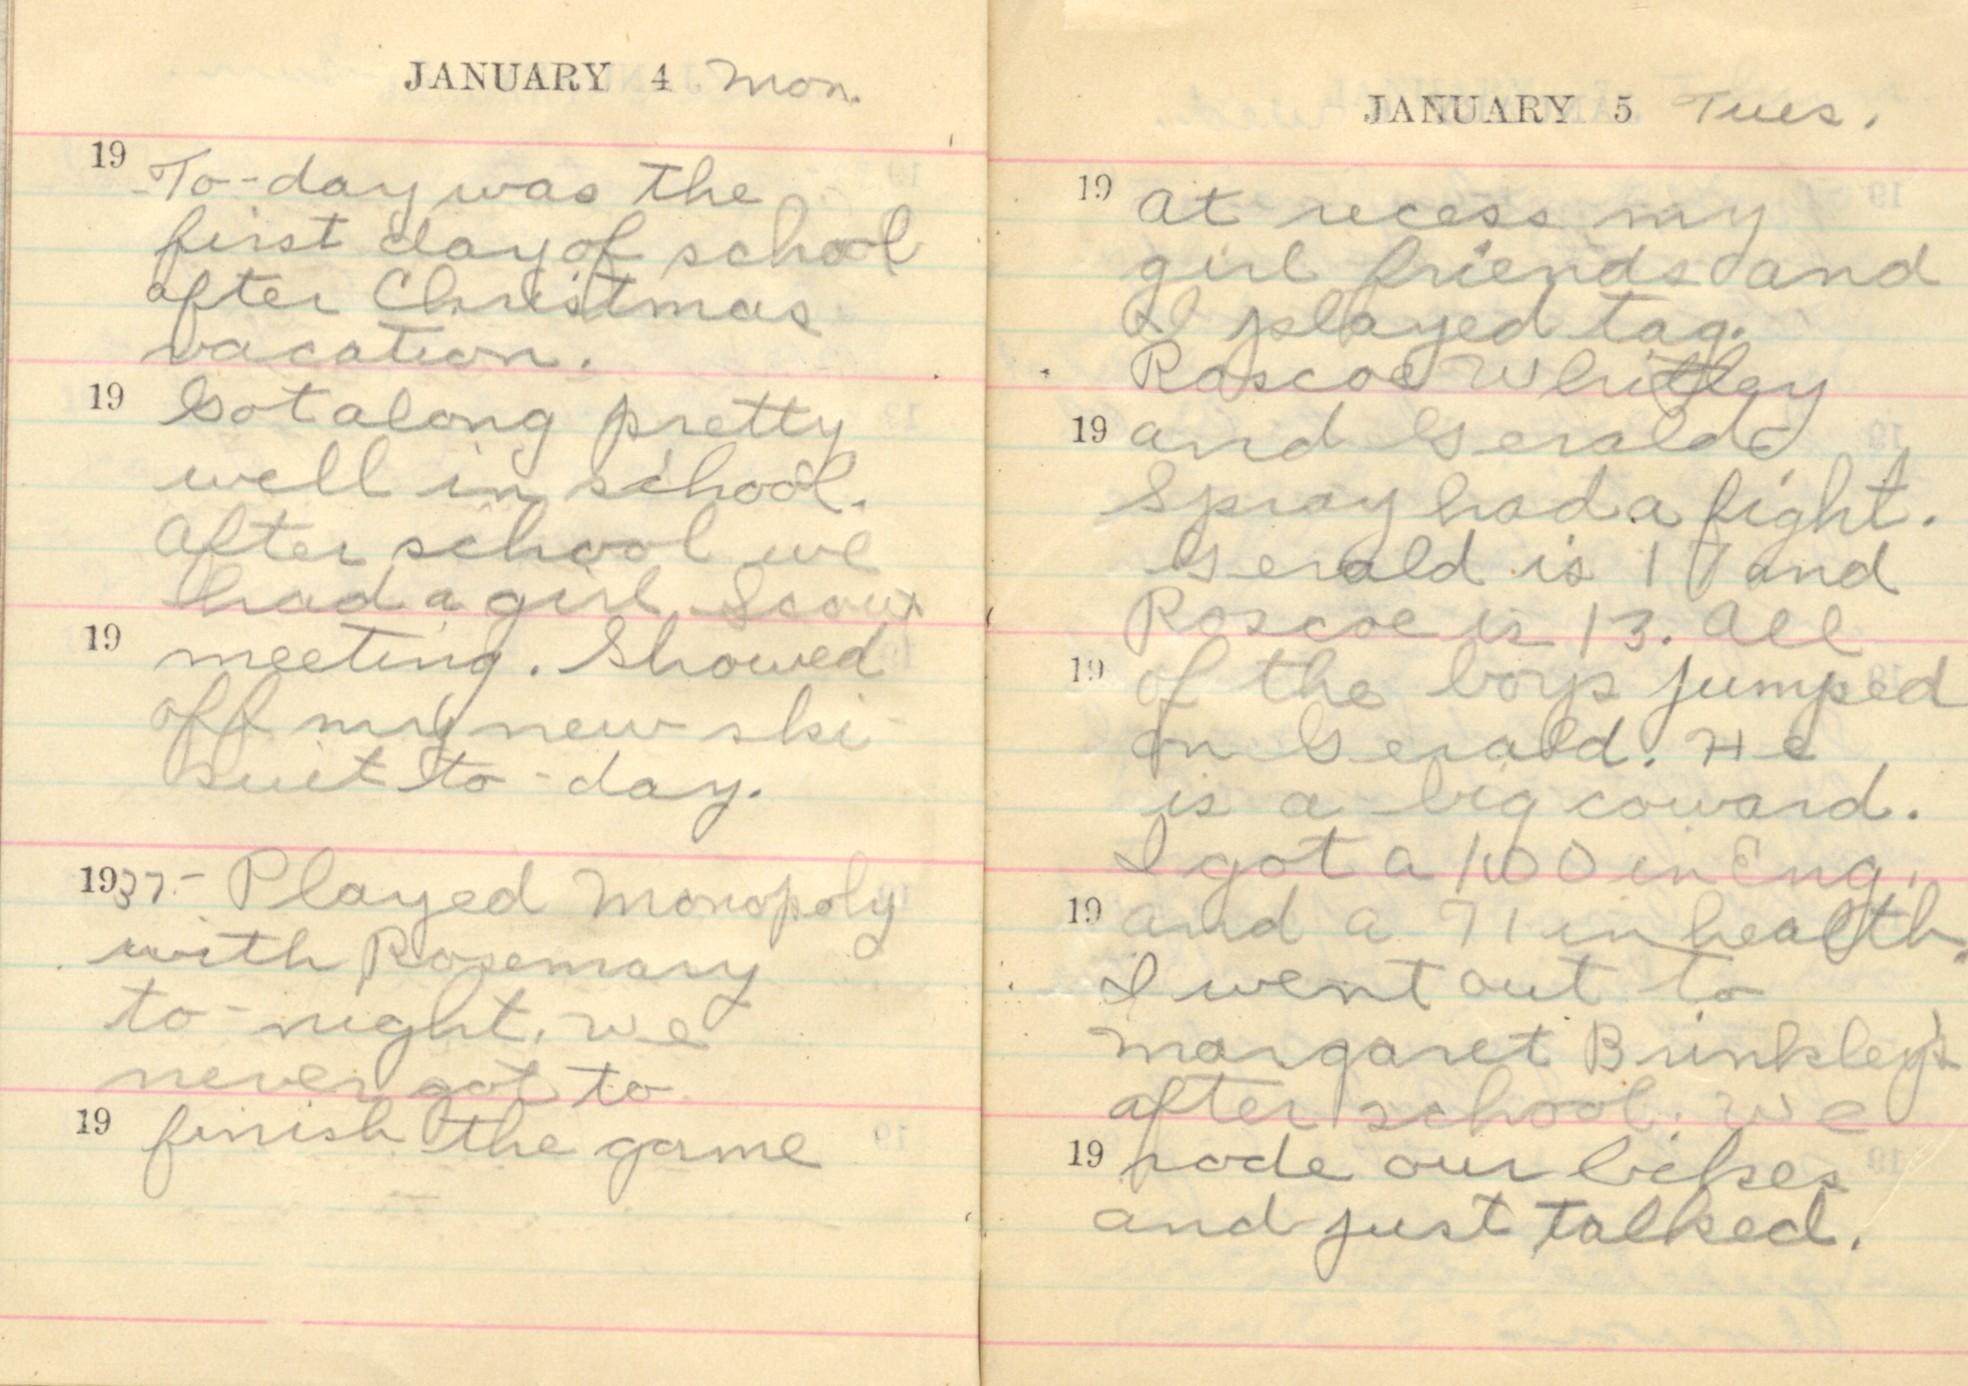 JANUARY 4 Mon.
19 To-day was the
first day of school
after Christmas
vacation.
19 Got along pretty
well in school.
After school we
had a girl Scout
19 meeting. Showed
off my new ski-
suit to-day.
1937- Played Monopoly
with Rosemary
to-night. We
never got to
19 finish the game
JANUARY 5 Tues.
19 At recess my
girl friends and
I played tag.
Roscoe Whitley
19 and Gerald
Spray had a fight.
Gerald is 17 and
Roscoe is 13. All
19 of the boys jumped
on Gerald. He
is a big coward.
I got a 100 in Eng.
19 and a 71 in health.
I went out to
Margaret Brinkley's
after school. We
19 rode our bikes
and just talked.